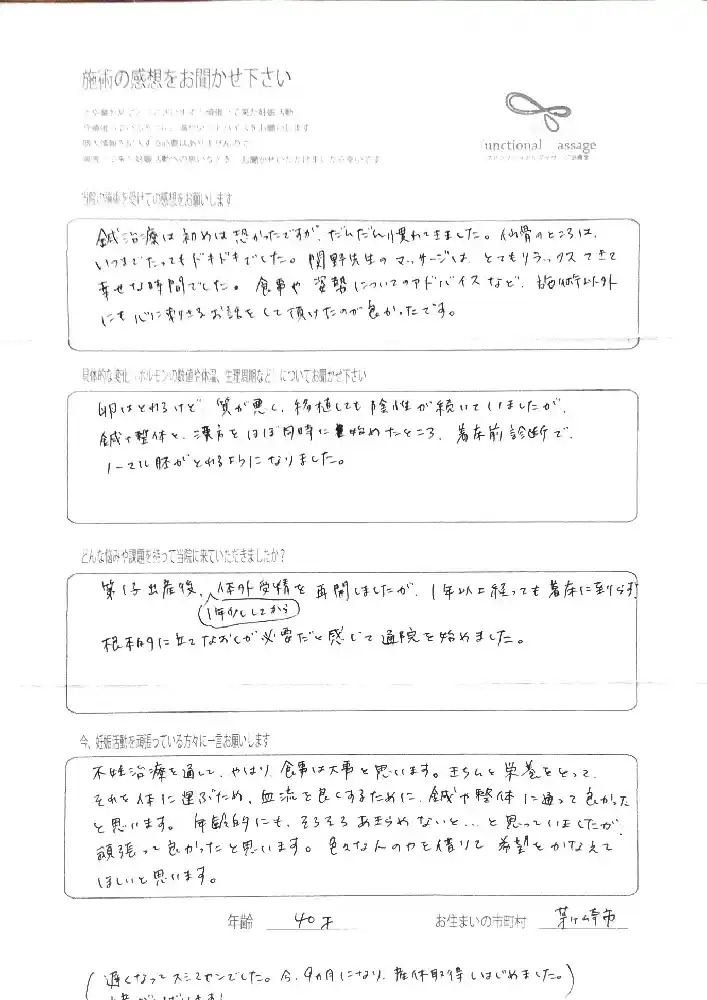 施術の感想をお聞かせ下さい
unctional assage
当院の施術を受けての感想をお願いします
鍼治療は初めは恐かったですが、だんだん慣れてきました。仙骨のところは、
いつまでたってもドキドキでした。関野先生のマッサージは、とてもリラックスできて
幸せな時間でした。食事や姿勢についてのアドバイスなど、施術以外
にも心に刺さるお話をして頂けたのが良かったです。
具体的な変化(ホルモンの数値や体温、生理周期など)についてお聞かせ下さい
卵はとれるけど質が悪く、移植しても陰性が続いていましたが、
鍼や整体と、漢方をほぼ同時に始めたところ、着床前診断で、
ノーマル胚がとれるようになりました。
どんな悩みや課題を持って当院に来ていただきましたか?
第1子出産後、体外受精を再開しましたが、1年以上経っても着床に到らず
1年少ししてから
根本的に立てなおしが必要だと感じて通院を始めました。
今、妊娠活動を頑張っている方々に一言お願いします
不妊治療を通して、やはり食事は大事と思います。きちんと栄養をとって、
それを体に運ぶため、血流を良くするために、鍼や整体に通って良かった
と思います。年齢的にも、そろそろあきらめないと...と思っていましたが、
頑張って良かったと思います。色々な人の力を借りて希望をかなえて
ほしいと思います。
年齢 40才 お住まいの市町村 茅ヶ崎市
(遅くなってスミマセンでした。今、9ヵ月になり、産休取得しはじめました。)